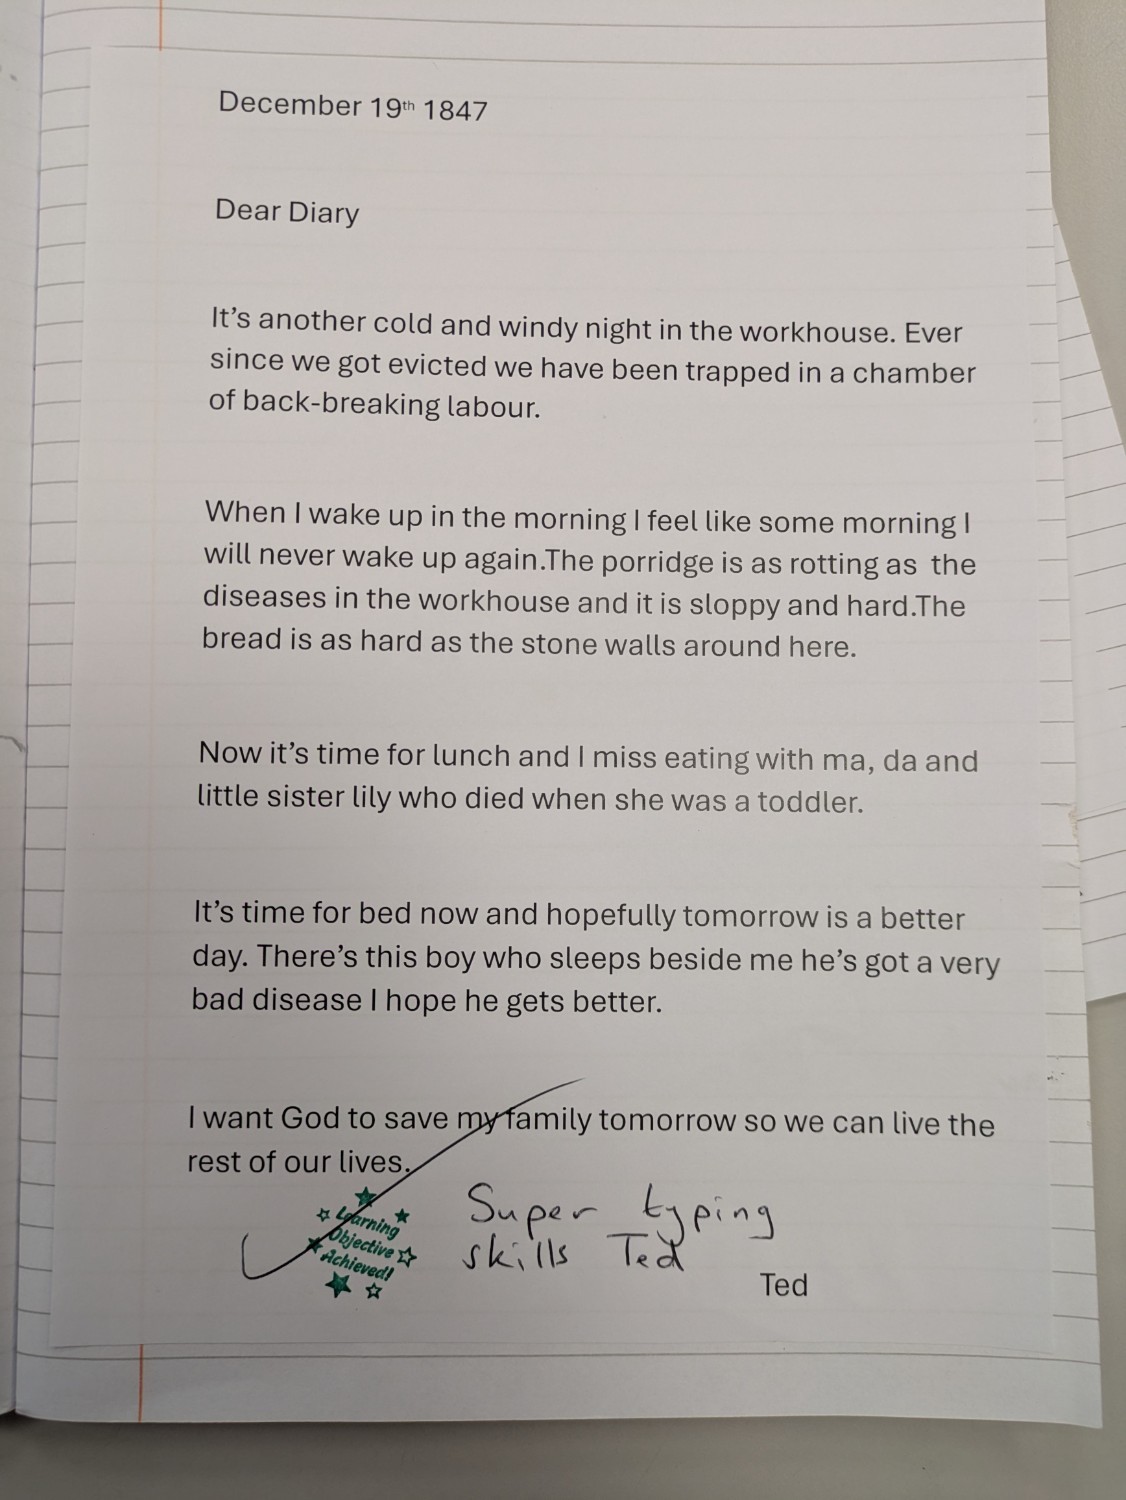 December 19th 1847
Dear Diary
It's another cold and windy night in the workhouse. Ever
since we got evicted we have been trapped in a chamber
of back-breaking labour.
When I wake up in the morning I feel like some morning I
will never wake up again.The porridge is as rotting as  the
diseases in the workhouse and it is sloppy and hard.The
bread is as hard as the stone walls around here.
Now it's time for lunch and I miss eating with ma, da and
little sister lily who died when she was a toddler.
It's time for bed now and hopefully tomorrow is a better
day. There's this boy who sleeps beside me he's got a very
bad disease I hope he gets better.
I want God to save my family tomorrow so we can live the
rest of our lives.
Learning
Objective
Achieved!
Super typing
skills Ted
Ted